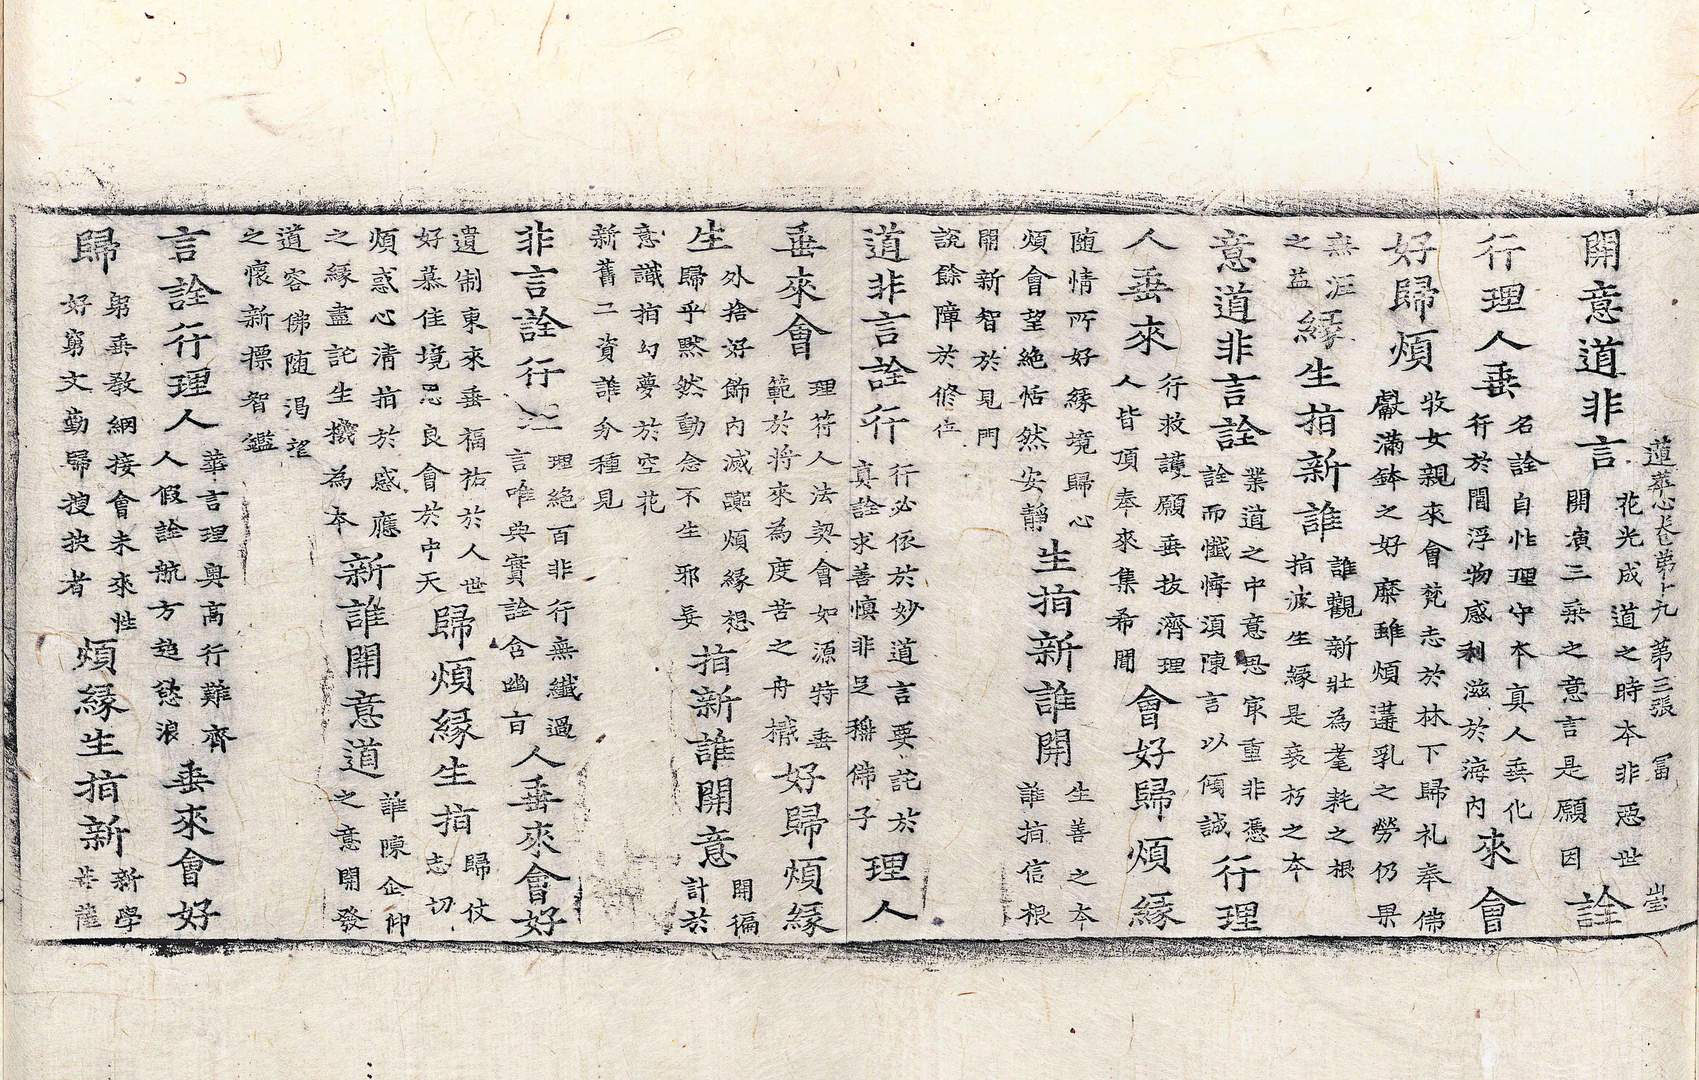 蓮華心卷第十九 第三張 冨
開意道非言 花光成道之時本非惡世 開演三乘之意言是願因 詮
行理人垂 名詮自性理守本真人垂化 行於閻浮物感利滋於海內 來會
好歸煩 牧女親來會梵志於林下歸礼奉佛 獻滿鉢之好糜雖煩遘乳之勞仍果
無涯之益 緣生指新誰 誰觀新壯為耄耗之根 指波生緣是衰朽之本
意道非言詮 業道之中意思寂重非憑 詮而懺悔須陳言以傾誠 行理
人垂來 行救護願垂拔濟理 人皆頂奉來集希聞 會好歸煩緣
随情所好緣境歸心 煩會望絶恬然安靜 生指新誰開 生善之本 誰指信根
開新智於見門 說餘障於修位
道非言詮行 行必依於妙道言要託於 真詮求善慎非足稱佛子 理人
垂來會 理符人法契會如源特垂 範於將來為度苦之舟檝 好歸煩緣
生 外捨好飾内滅輿煩緣想 歸乎黙然動念不生邪妄 指新誰開意 開徧 計於
意識指幻夢於空花 新舊二資誰分種見
非言詮行 理絶百非行無纖過 言唯典實詮含幽旨 人垂來會好
遺制東來垂福祐於人世 好慕佳境思良會於中天 歸煩緣生指 歸仗 志切
煩惑心清指於感應 之緣盡託生機為本 新誰開意道 誰陳企仰 之意開發
道容佛随渇望 之懷新摽智鑑
言詮行理人 華言理奧高行難齊 人假詮航方超慾浪 垂來會好
歸 躬垂教網接會未來性 好窮文勤歸搜抉者 煩緣生指新 新學 菩薩